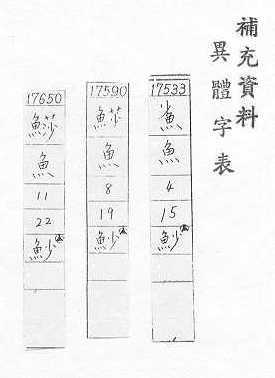 補充資料
異體字表
17533
魚
4
15
魦
17590
魚
8
19
魦
17650
魚
11
22
魦